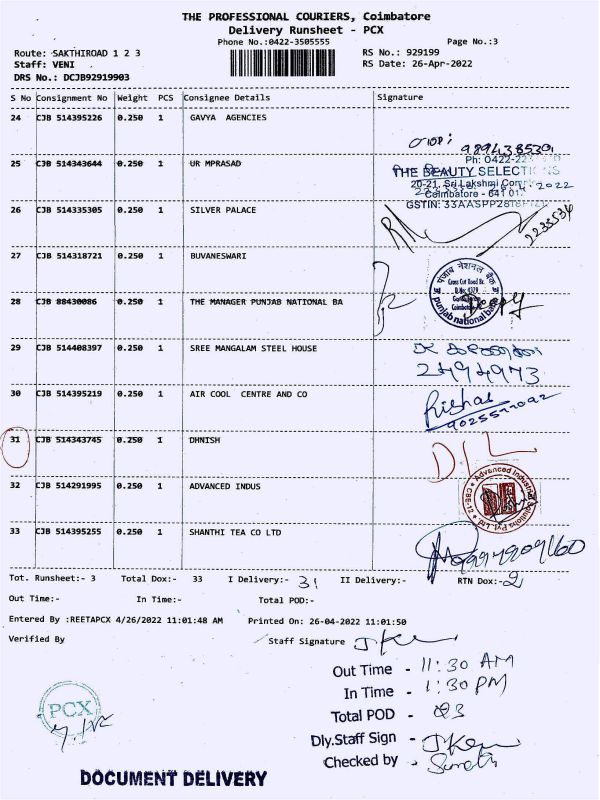 THE PROFESSIONAL COURIERS, Coimbatore
Delivery Runsheet - PCX
Phone No.:0422-3505555 Page No.:3
Route: SAKTHIROAD 1 2 3 RS No.: 929199
Staff: VENI RS Date: 26-Apr-2022
DRS No.: DCJB92919903
S No Consignment No Weight PCS Consignee Details Signature
24 CJB 514395226 0.250 1 GAVYA AGENCIES
25 CJB 514343644 0.250 1 UR MPRASAD
Ph: 0422-22
THE BEAUTY SELECTIONS
20-21, Sri Lakshmi
Coimbatore - 641 01
GSTIN: 33AASPP28
26 CJB 514335305 0.250 1 SILVER PALACE
2235534
27 CJB 514318721 0.250 1 BUVANESWARI
पंजाब नेशनल बैंक
Cross Cut Road Br.
punjab national bank
28 CJB 88430086 0.250 1 THE MANAGER PUNJAB NATIONAL BA
29 CJB 514408397 0.250 1 SREE MANGALAM STEEL HOUSE
30 CJB 514395219 0.250 1 AIR COOL CENTRE AND CO
Rishab
31 CJB 514343745 0.250 1 DHNISH
D/L
32 CJB 514291995 0.250 1 ADVANCED INDUS
Advanced Industrial Solutions Pvt. Ltd
CBE-12
33 CJB 514395255 0.250 1 SHANTHI TEA CO LTD
Tot. Runsheet:- 3 Total Dox:- 33 I Delivery:- 31 II Delivery:- RTN Dox:- 2
Out Time:- In Time:- Total POD:-
Entered By :REETAPCX 4/26/2022 11:01:48 AM Printed On: 26-04-2022 11:01:50
Verified By Staff Signature
Out Time - 11:30 AM
In Time - 1:30 PM
Total POD - 03
Dly.Staff Sign -
Checked by -
PCX
DOCUMENT DELIVERY